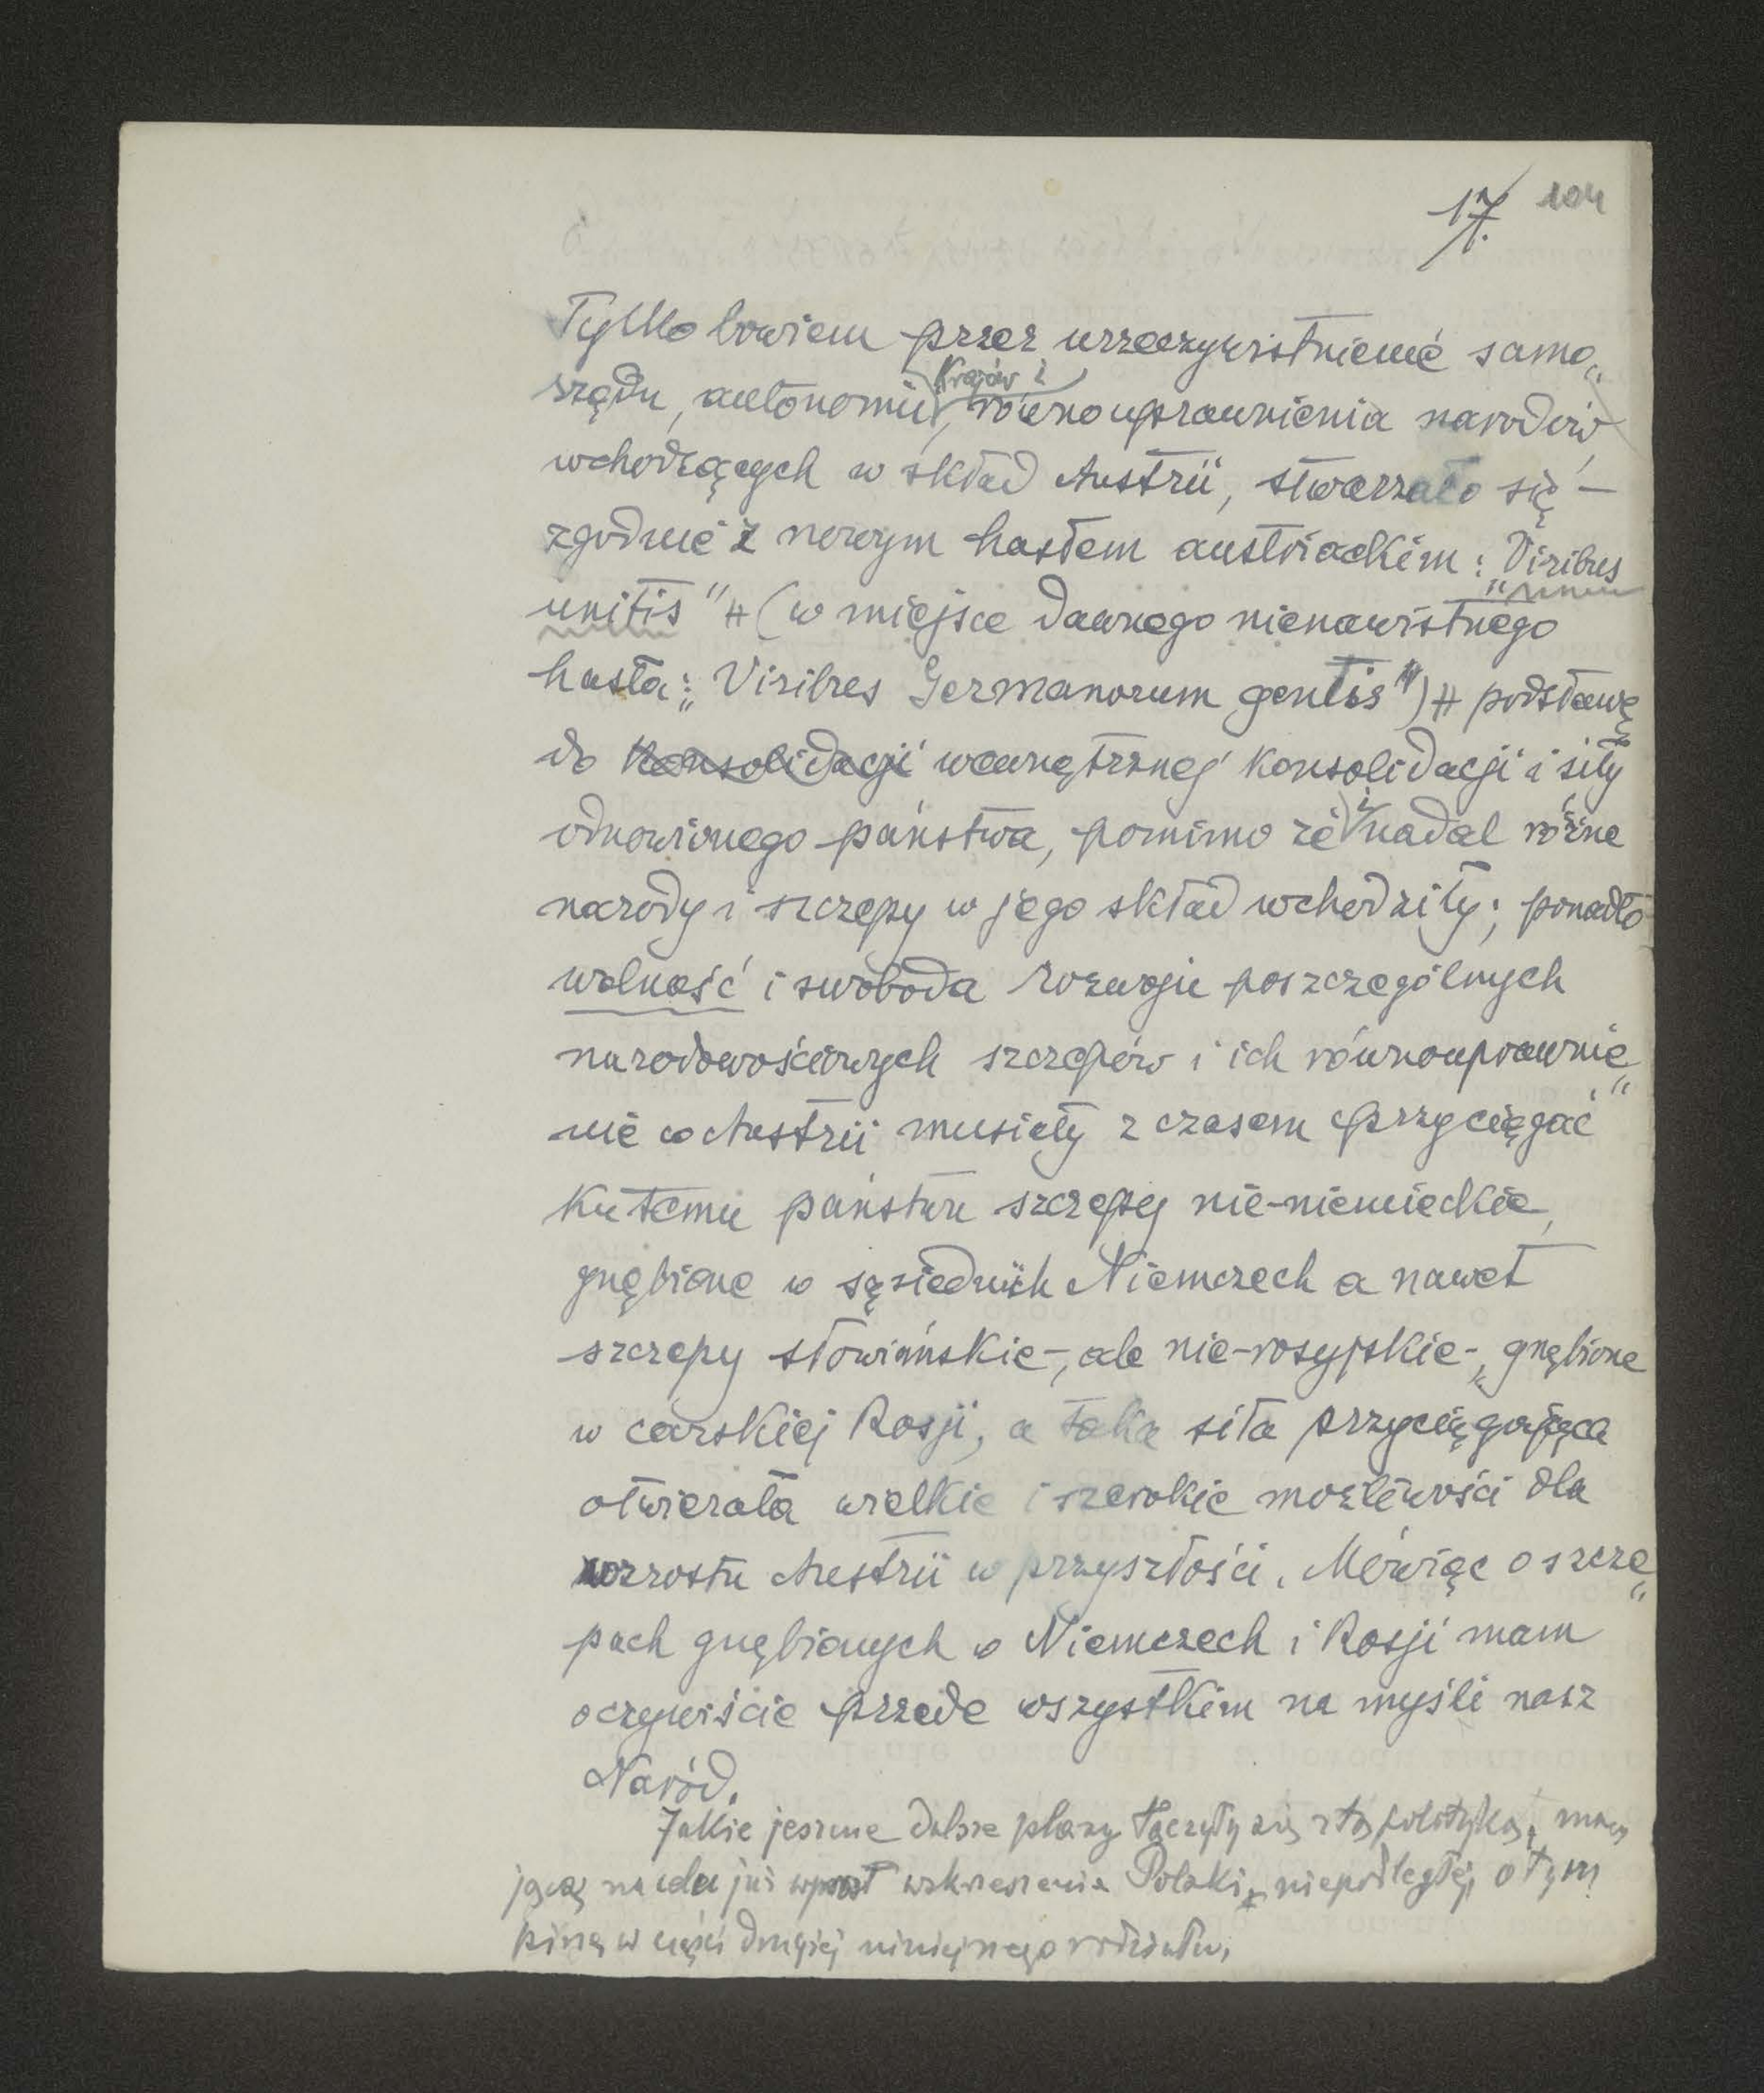 17. 104
Tylko bowiem przez urzeczywistnienie samo„
rządu, autonomii Krajów i równouprawnienia narodów
wchodzących w skład Austrii, stwarzało się –
zgodnie z nowym hasłem austriackim: „Viribus
unitis" # (w miejsce dawnego nienawistnego
hasła: „Viribus Germanorum gentis") # podstawę
do konsolidacji wewnętrznej konsolidacji i siły
odnowionego państwa, pomimo że i nadal różne
narody i szczepy w jego skład wchodziły; ponadto
wolność i swoboda rozwoju poszczególnych
narodowościowych szczepów i ich równouprawnie„
nie w Austrii musiały z czasem przyciągać
ku temu państwu szczepy nie-niemieckie,
gnębione w sąsiednich Niemczech a nawet
szczepy słowiańskie-, ale nie-rosyjskie-, gnębione
w carskiej Rosji, a taka siła przyciągająca
otwierała wielkie i szerokie możliwości dla
wzrostu Austrii w przyszłości. Mówiąc o szcze„
pach gnębionych w Niemczech i Rosji mam
oczywiście przede wszystkim na myśli nasz
Naród.
Jakie jeszcze dalsze plany łączyły się z tą polityką, mają
jącą na celu już wprost wskrzeszenie Polski niepodległej, o tym
piszę w części drugiej niniejszego rozdziału.